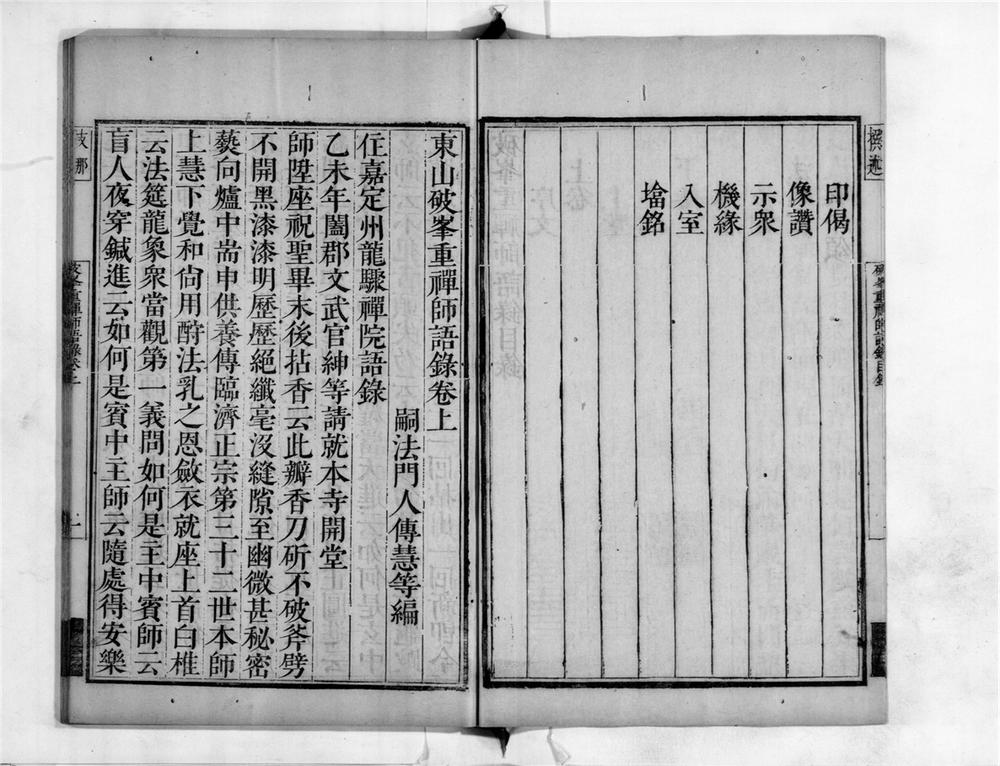 撰述
破峯重禪師語錄目錄
印偈
像讚
示衆
機緣
入室
墖銘
東山破峯重禪師語錄卷上
嗣法門人傳慧等編
住嘉定州龍驟禪院語錄
乙未年闔郡文武官紳等請就本寺開堂
師陞座祝聖畢末後拈香云此瓣香刀斫不破斧劈
不開黑漆漆明歷歷絕纖毫沒縫隙至幽微甚秘密
爇向爐中耑申供養傳臨濟正宗第三十二世本師
上慧下覺和尙用酧法乳之恩斂衣就座上首白椎
云法筵龍象衆當觀第一義問如何是主中賓師云
盲人夜穿鍼進云如何是賓中主師云隨處得安樂
支那
破峯重禪師語錄卷上
一